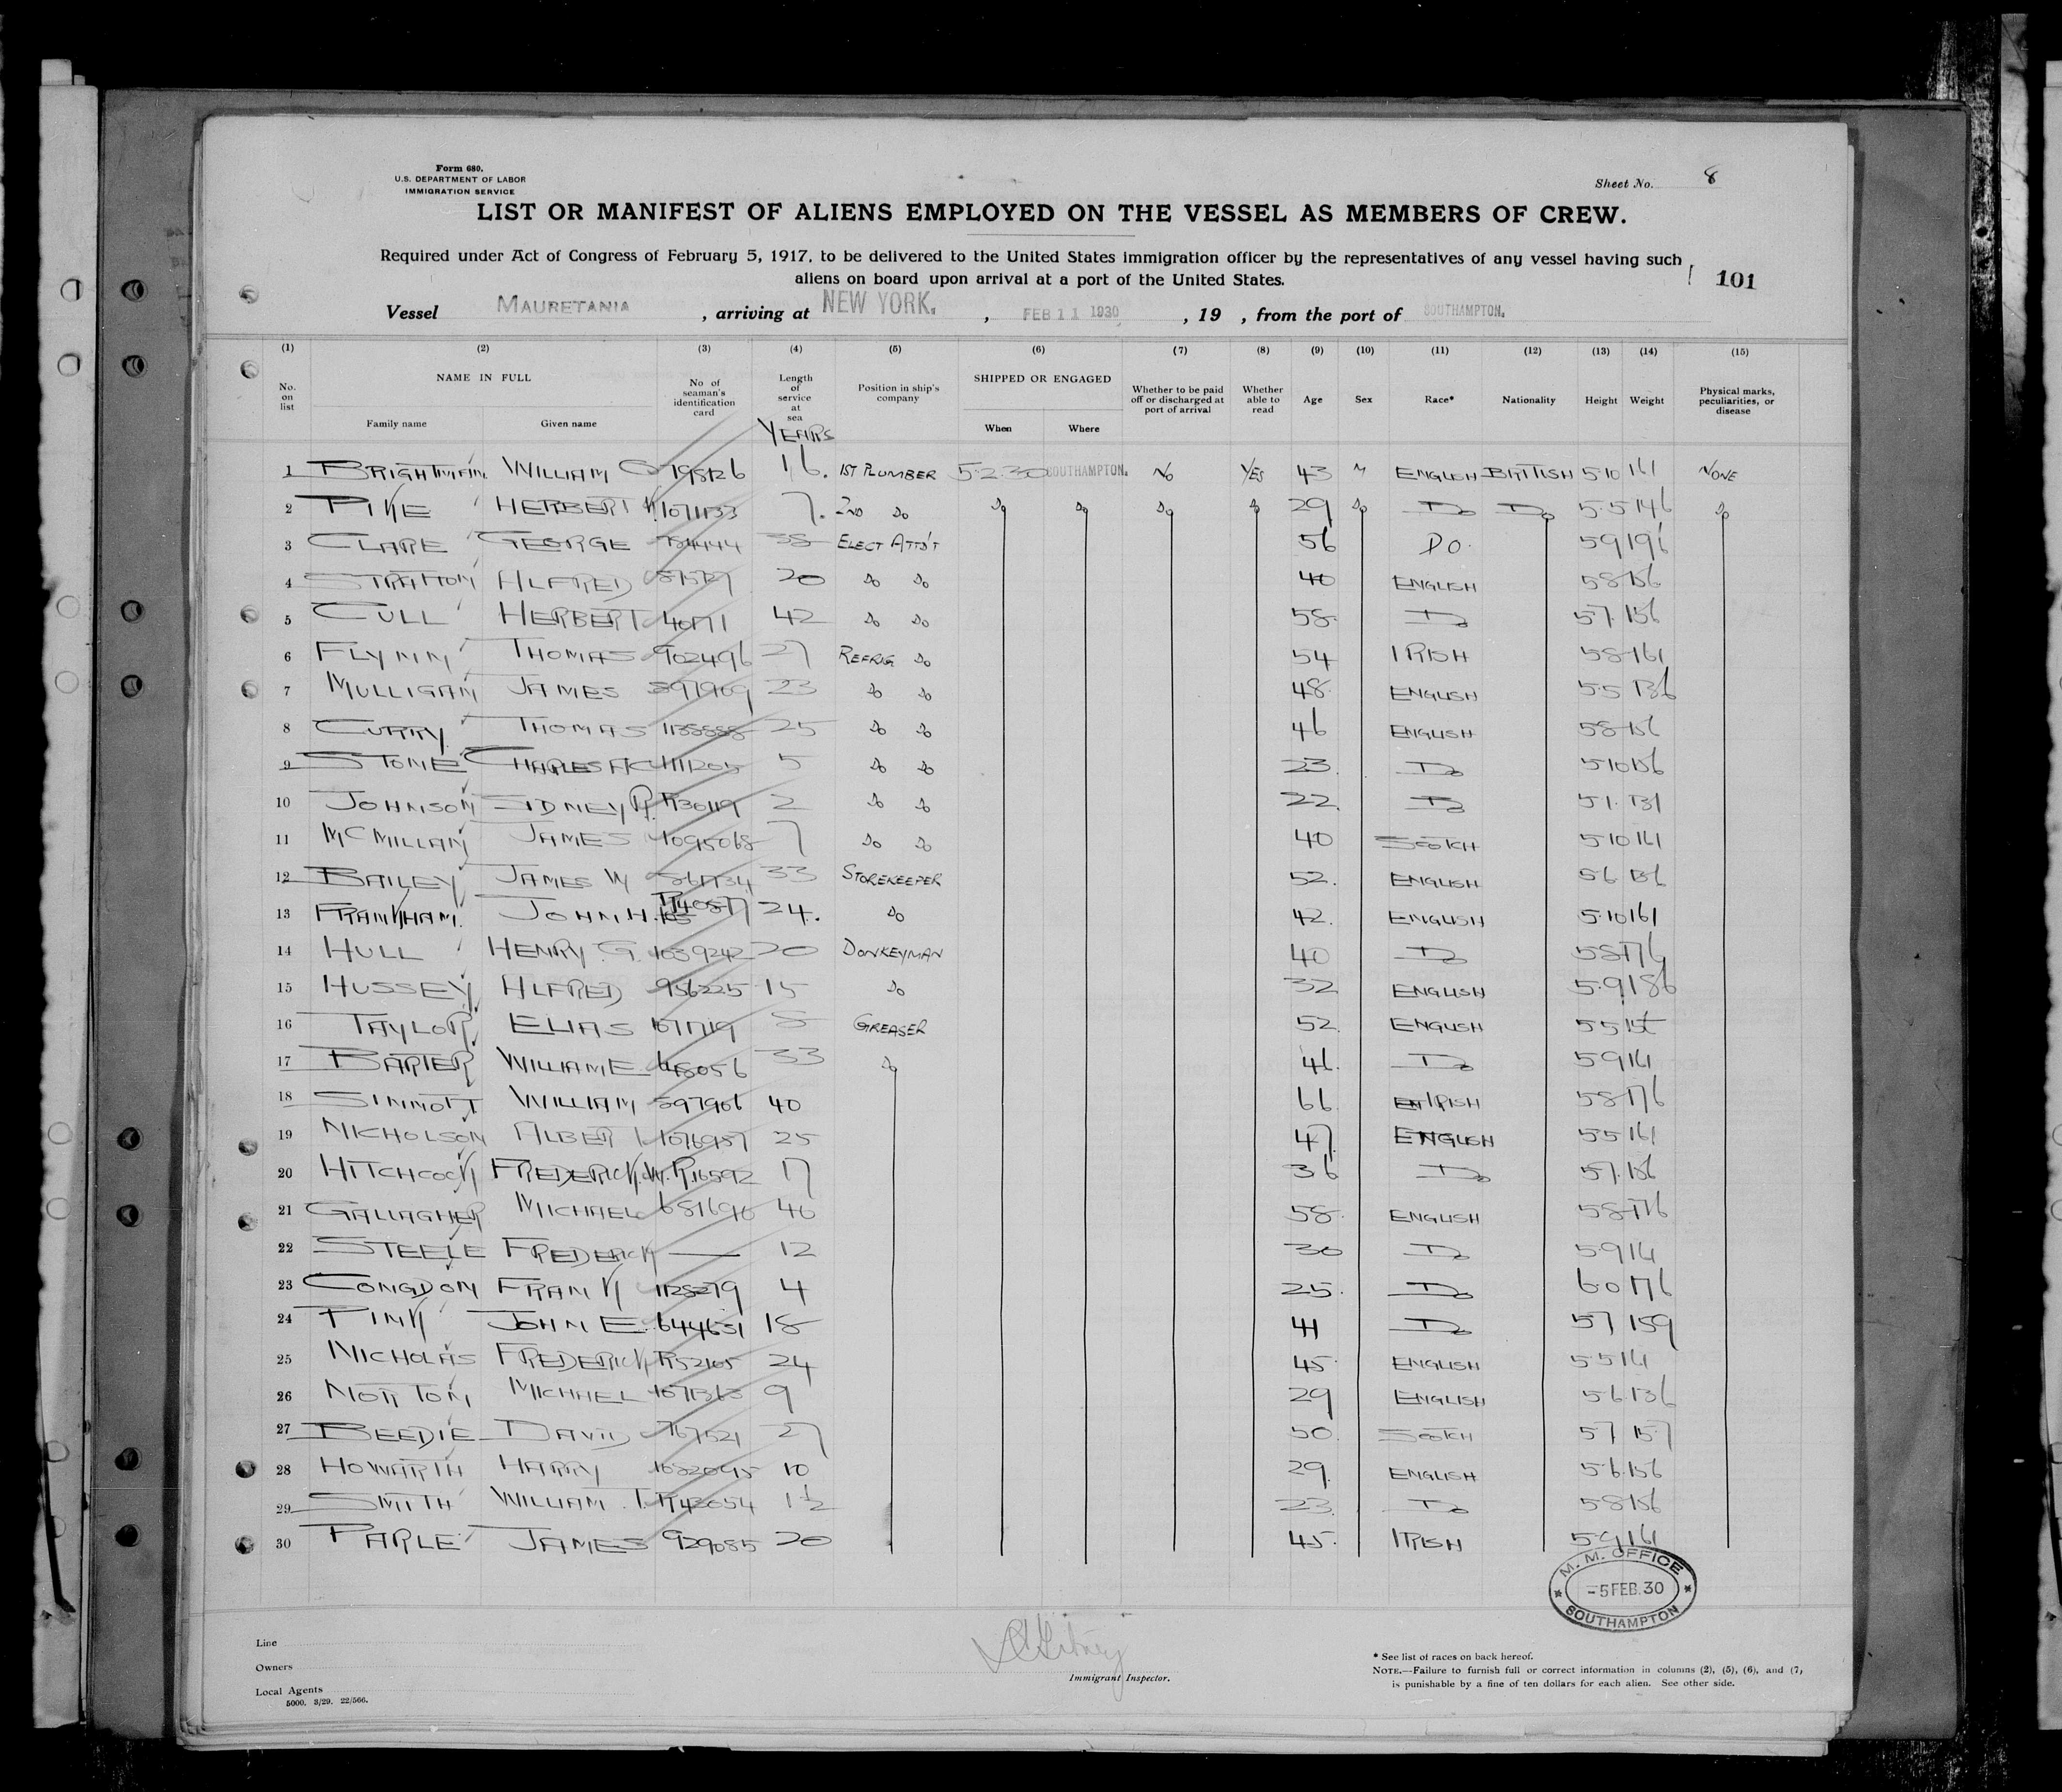 Form 680.
U.S. DEPARTMENT OF LABOR
IMMIGRATION SERVICE
Sheet No. 8
LIST OR MANIFEST OF ALIENS EMPLOYED ON THE VESSEL AS MEMBERS OF CREW.
Required under Act of Congress of February 5, 1917, to be delivered to the United States immigration officer by the representatives of any vessel having such
aliens on board upon arrival at a port of the United States.
101
Vessel MAURETANIA, arriving at NEW YORK., FEB 11 1930, 19 , from the port of SOUTHAMPTON.
(1) (2) (3) (4) (5) (6) (7) (8) (9) (10) (11) (12) (13) (14) (15)
No. on list NAME IN FULL Family name Given name No of seaman's identification card Length of service at sea YEARS Position in ship's company SHIPPED OR ENGAGED When Where Whether to be paid off or discharged at port of arrival Whether able to read Age Sex Race* Nationality Height Weight Physical marks, peculiarities, or disease
1 BRIGHTMAN WILLIAM 16. 1ST PLUMBER 5.2.30 SOUTHAMPTON. NO YES 43 M ENGLISH BRITISH 5 10 161 NONE
2 PIKE HERBERT W. 1071133 7. 2ND DO DO DO DO DO 29 DO DO DO 5.5 146 DO
3 CLARE GEORGE 38 ELECT ATTD'T 56 DO. 5 9 196
4 STRATTON ALFRED 20 DO DO 40 ENGLISH 5 8 156
5 CULL HERBERT 42 DO DO 58 DO 5.7. 156
6 FLYNN THOMAS 902496 27 REFRIG DO 54 IRISH 5 8 161
7 MULLIGAN JAMES 897909 23 DO DO 48. ENGLISH 5.5 136
8 CURRY THOMAS 25 DO DO 46 ENGLISH 5 8 156
9 STONE CHARLES 5 DO DO 23. DO 5 10 156
10 JOHNSON SIDNEY R. R30119 2 DO DO 22. DO 5 7. 131
11 MCMILLAN JAMES 1095068 7 DO DO 40 SCOTCH 5 10 161
12 BAILEY JAMES W 33 STOREKEEPER 52. ENGLISH 5 6 136
13 FRANKHAM. JOHN H. 24. DO 42. ENGLISH 5.10 161
14 HULL HENRY G. 1039242 20 DONKEYMAN 40 DO 5 8 176
15 HUSSEY ALFRED 956225 15 DO 32 ENGLISH 5.9 186
16 TAYLOR ELIAS 8 GREASER 52. ENGLISH 5 5
17 WILLIAM E 33 DO 46. DO 5 9
18 SINNOTT WILLIAM 597906 40 66 IRISH 5 8 176
19 NICHOLSON ALBERT 1076957 25 47 ENGLISH 5 5 161
20 HITCHCOCK FREDERICK. W. R16592 17 36 DO 5 7. 156
21 GALLAGHER MICHAEL 681696 40 58. ENGLISH 5 8 176
22 STEELE FREDERICK — 12 30 DO 5 9
23 CONGDON FRANK 1128279 4 25. DO 6 0 176
24 PINK JOHN E. 644651 18 41 DO 5 7 159
25 NICHOLAS FREDERICK R52165 24 45. ENGLISH 5 5
26 NORTON MICHAEL 9 29 ENGLISH 5 6 136
27 BEEDIE DAVID 767521 27 50. SCOTCH 5 7 157
28 HOWARTH HARRY 1032095 10 29. ENGLISH 5.6 156
29 SMITH WILLIAM. T. R42054 1½ 23. DO 5 8 156
30 PARLE JAMES 929085 20 45. IRISH 5 9 161
M. M. OFFICE
-5 FEB. 30
SOUTHAMPTON
Line
Owners
Local Agents
5000. 3/29. 22/566.
Immigrant Inspector.
* See list of races on back hereof.
NOTE.—Failure to furnish full or correct information in columns (2), (5), (6), and (7,
is punishable by a fine of ten dollars for each alien. See other side.